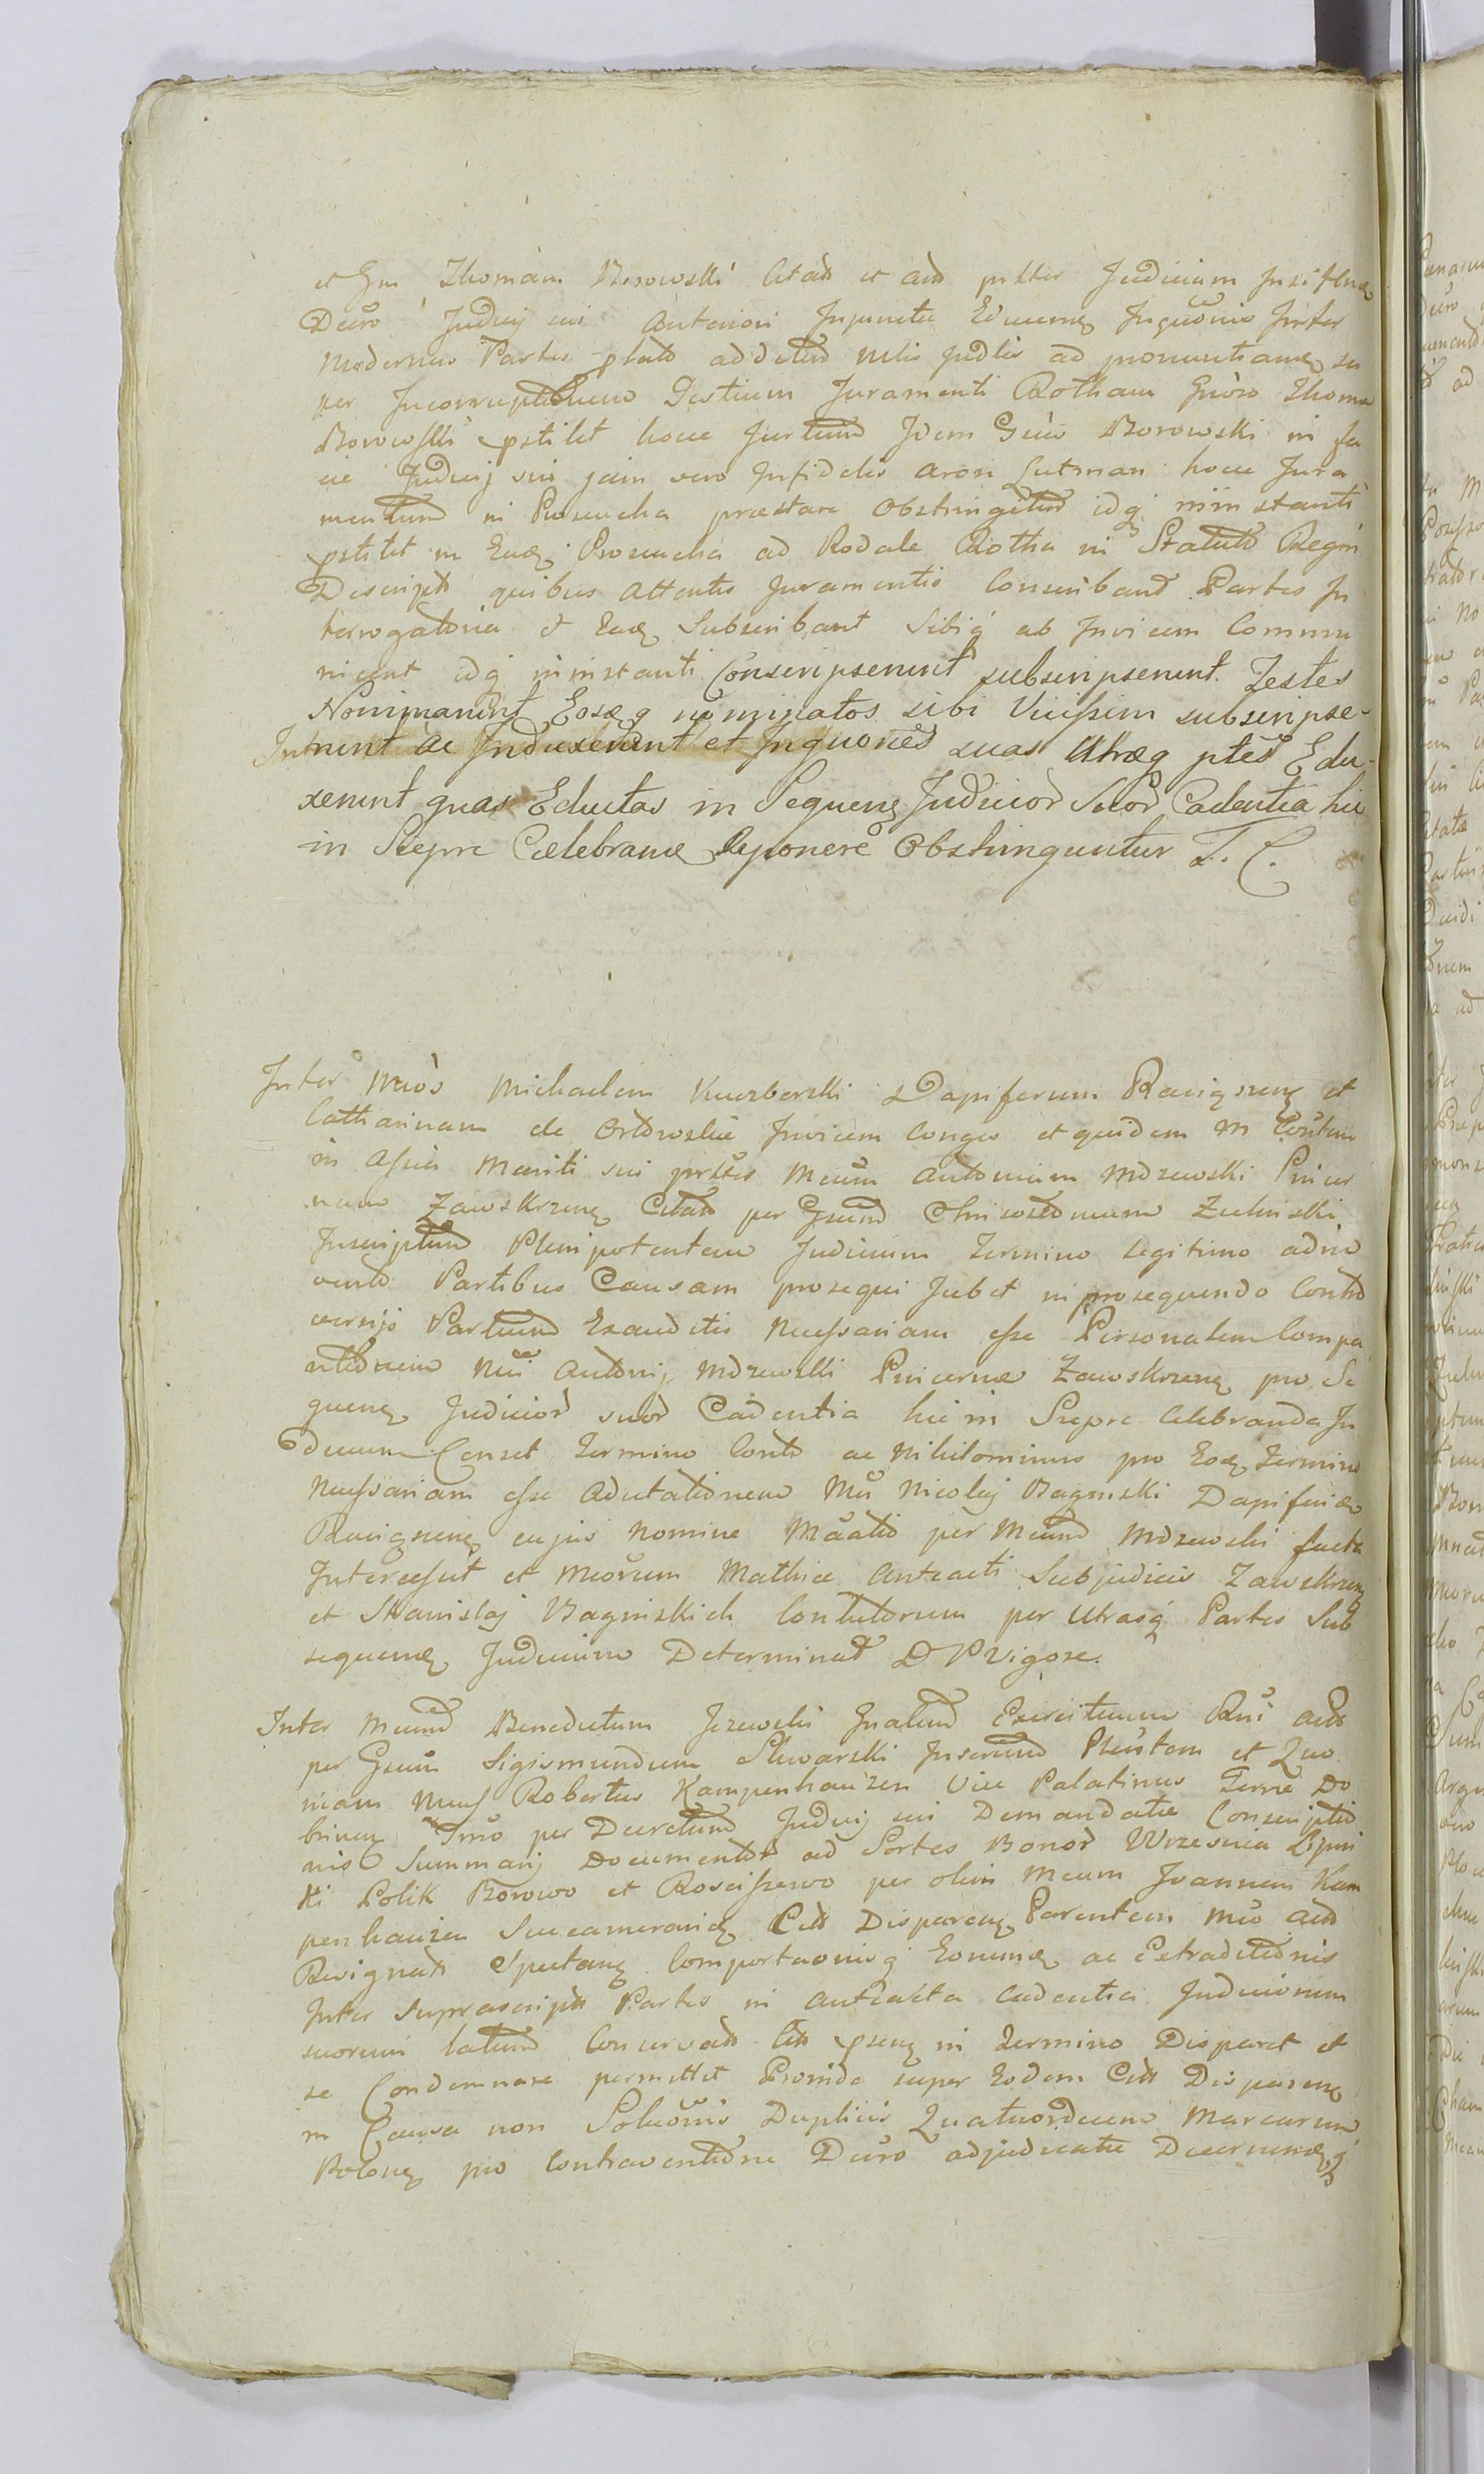 et Gm Thomam Borowski Citatt et actt prtter Judicium Insitendo
Decro Judicij sui Anteriori Injuncta Educend Inquonis Inter
modernas Partes plato additud velis Judlis ad pronuntiand su
per Incorruptibileno Testium Juramenti Rotham Gnoro Thoma
Borowski pstitit houe Jurtum Idem Gnus Borowski in fa
cie Judicij sui jam vero Infidelis Aron Lutman houe Jura
mentum in Proseucha praestare Obstringitur idq in instanti
pstitit in Ead Proseucha ad Rodale Rotha in Statuto Regni
Descripta quibus Attentis Juramentis Conscribant Partes In
terrogatoria et Ead Subscribant Sibiq ab Invicem Commu
nicent idq in instanti Conscripserunt subscripserunt. Testes
Nominarunt Eosdq nominatos sibi Vicissim subscripse-
runt ac Induxerunt et Inquones suas Utræq ptes Edu-
xerunt quas Eductas in Sequend Judicior Suor Cadentia hic
in Siepre Celebrand Reponere Obstringuntur T. C.
Inter Mcos Michaelem Kuczborski Dapiferum Racigsens et
Catharinam de Ortowskie Invicem Conges et quidem in Contem
in Assia Mariti sui prttes Mcum Antonium Mdzewski Pincer
nam Zawskrzens Citatt per Gsum Chrisostomum Zielinski
Inscriptum Plenipotentem Judicium Termino legitimo adin
vento Partibus Causam prosequi Jubet in prosequendo Contro
versijs Partium Exauditis Necessariam esse Personalem Compa
ritionem Mci Antonij Mdzewski Pincernæ Zawskrzens pro Se
quend Judicior suor Cadentia hic in Siepre Celebranda In
ducum Censet Termino Conto ac Nihilominus pro Eod Termino
Necessariam esse Adcitationem Mci Nicolaj Bagniski Dapiferidæ
Racigsens cujus Nomine Maatio per Mcum Mdzewski facta
Intercessit et Mcorum Mathiæ Anteacti Subjudicis Zawskrzens
et Stanislaj Bagniskich Contutorum per Utrasq Partes Sub
sequend Judicium Determinat D P Vigore.
Inter Mcum Benedictum Jezewski Gnalem Exercituum Rni actt
per Gsum Sigismundum Sluwarski Inserum Plentem et Quo
niam Mcus Robertus Kampenhauzen Vice Palatinus Terræ Do
brinen Imo per Decretum Judicij sui Demandatæ Conscriptio
nis Summarij Documentor ad Sortes Bonor Wrzesnia Lipni
ki Polik Borowo et Rosciszewo per olim Mcum Joannem Kam
penhauzen Succamerarid Citt Disparens Parentem Mco actt
Resignatt Spectans Comportaonisq Eorund ac Extraditionis
Inter suprascriptt Partes in anteacta Cadentia Judiciorum
suorum latum Conservatt Citt psens in Termino Disparet et
se Condemnare permittit Proinde super Eodem Citt Disparens
in Causa non Soluonis Duplicis Quatuordecim Marcarum
Polons pro Contraventione Decro adjudicatæ Decernendq